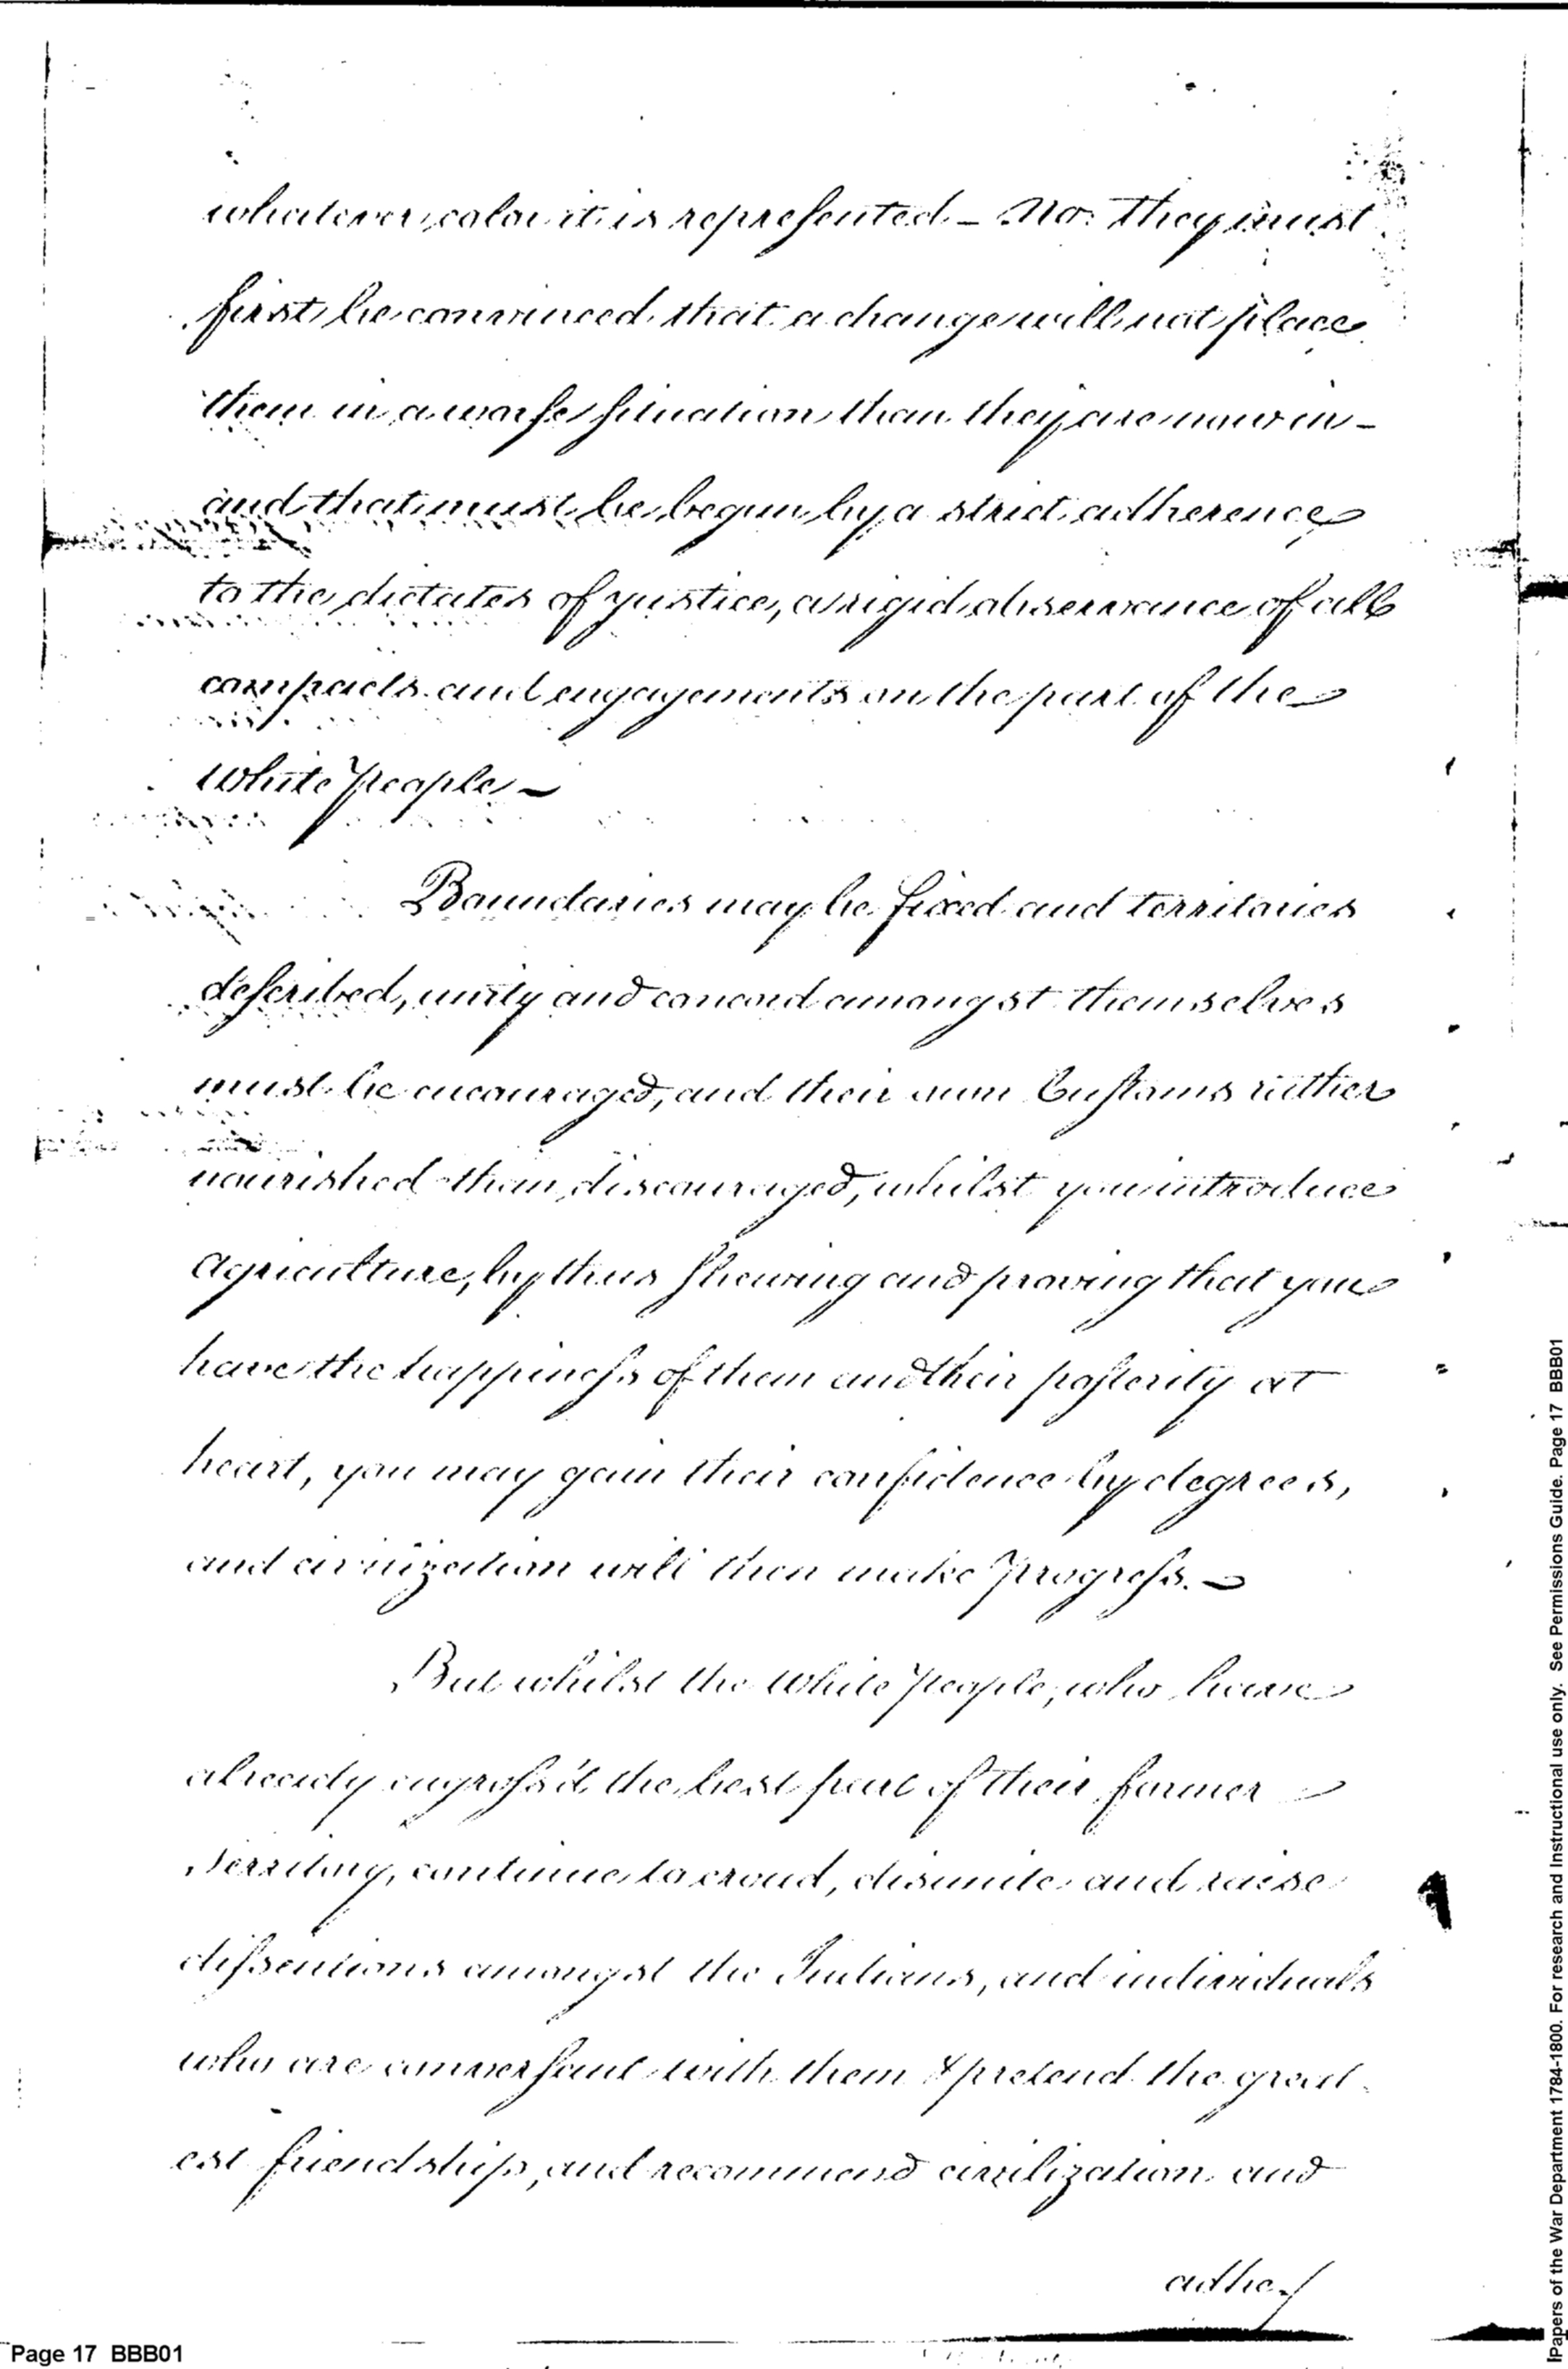 whatever color it is represented. – No. They must
first be convinced, that a change will not place
them in a worse situation than they are now in –
and that must be begun by a strict adherence
to the dictates of justice, a rigid observance of all
compacts and engagements on the part of the
White People –
Boundaries may be fixed and territories
described, unity and concord amongst themselves
must be encouraged, and their own Customs rather
nourished than discouraged, whilst you introduce
Agriculture, by thus shewing and proving that you
have the happiness of them and their posterity at
heart, you may gain their confidence by degrees,
and civilization will then make progress. –
But whilst the White People, who have
already engross'd the best part of their former
Territory, continue to croud, disunite and raise
dissentions amongst the Indians, and individuals
who are conversant with them & pretend the great
est friendship, and recommend civilization and
adhe
Page 17 BBB01
Papers of the War Department 1784-1800. For research and Instructional use only. See Permissions Guide. Page 17 BBB01